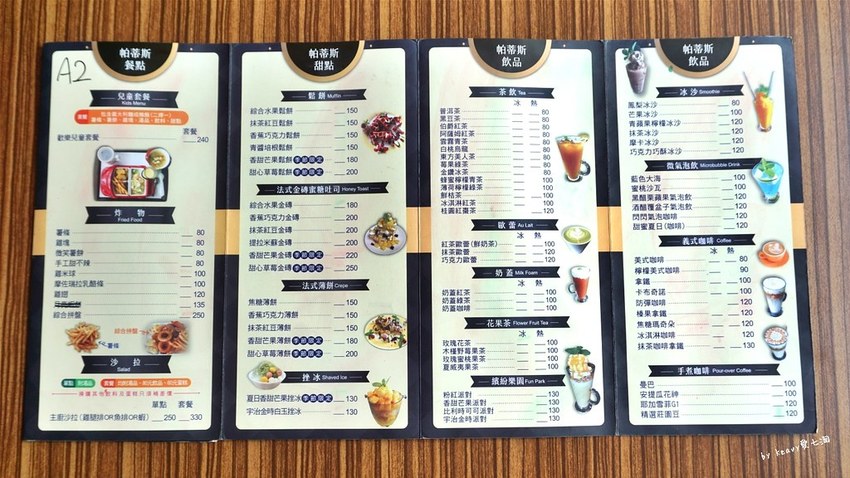 A2
帕蒂斯
餐點
兒童套餐
Kids Menu
套餐
歡樂兒童套餐 240
炸 物
Fried Food
薯條 80
雞塊 80
微笑薯餅 80
手工甜不辣 80
雞米球 100
摩佐瑞拉乳酪條 100
雞翅 120
135
綜合拼盤 250
綜合拼盤
薯條
沙 拉
Salad
單點 套餐
主廚沙拉(雞腿排OR魚排OR蝦) 250 330
帕蒂斯
甜點
鬆 餅 Muffin
綜合水果鬆餅 150
抹茶紅豆鬆餅 150
香蕉巧克力鬆餅 150
青醬培根鬆餅 150
香甜芒果鬆餅 季節限定 180
甜心草莓鬆餅 季節限定 200
法式金磚蜜糖吐司 Honey Toast
綜合水果金磚 180
香蕉巧克力金磚 200
抹茶紅豆金磚 200
提拉米蘇金磚 200
香甜芒果金磚 季節限定 220
甜心草莓金磚 季節限定 250
法式薄餅 Crepe
焦糖薄餅 150
香蕉巧克力薄餅 150
抹茶紅豆薄餅 150
香甜芒果薄餅 季節限定 180
甜心草莓薄餅 季節限定 200
挫 冰 Shaved Ice
夏日香甜芒果挫冰 季節限定 130
宇治金時白玉挫冰 130
帕蒂斯
飲品
茶 飲 Tea
冰 熱
普洱茶 80
黑豆茶 80
伯爵紅茶 80
阿薩姆紅茶 80
雲霧青茶 80
白桃烏龍 80
東方美人茶 80
莓果綠茶 80
金鑽冰茶 80
蜂蜜檸檬青茶 100
薄荷檸檬綠茶 100
鮮桔茶 100
冰淇淋紅茶 100
桂圓紅棗茶 100
歐 蕾 Au Lait
冰 熱
紅茶歐蕾(鮮奶茶) 100
抹茶歐蕾 120
巧克力歐蕾 120
奶 蓋 Milk Foam
冰 熱
奶蓋紅茶 100
奶蓋綠茶 100
奶蓋咖啡 100
花果茶 Flower Fruit Tea
冰 熱
玫瑰花茶 100
木槿野莓果茶 100
玫瑰蜜桃果茶 100
夏威夷果茶 100
繽紛樂園 Fun Park
粉紅派對 100
香甜芒果派對 100
比利時可可派對 100
宇治金時派對 100
帕蒂斯
飲品
冰 沙 Smoothie
鳳梨冰沙 80
芒果冰沙 100
青蘋果檸檬冰沙 120
抹茶冰沙 120
摩卡冰沙 120
巧克力巧酥冰沙 120
微氣泡飲 Microbubble Drink
藍色大海 120
蜜桃沙瓦 120
黑醋栗蘋果氣泡飲 120
酒釀覆盆子氣泡飲 120
閃閃氣泡咖啡 120
甜蜜夏日(咖啡) 120
義式咖啡 Coffee
冰 熱
美式咖啡 80
檸檬美式咖啡 90
拿鐵 100
卡布奇諾 100
防彈咖啡 120
榛果拿鐵 120
焦糖瑪奇朵 120
冰淇淋咖啡 120
抹茶咖啡拿鐵 130
手煮咖啡 Pour-over Coffee
曼巴 100
安提瓜花神 100
耶加雪菲G1 100
精選莊園豆 120